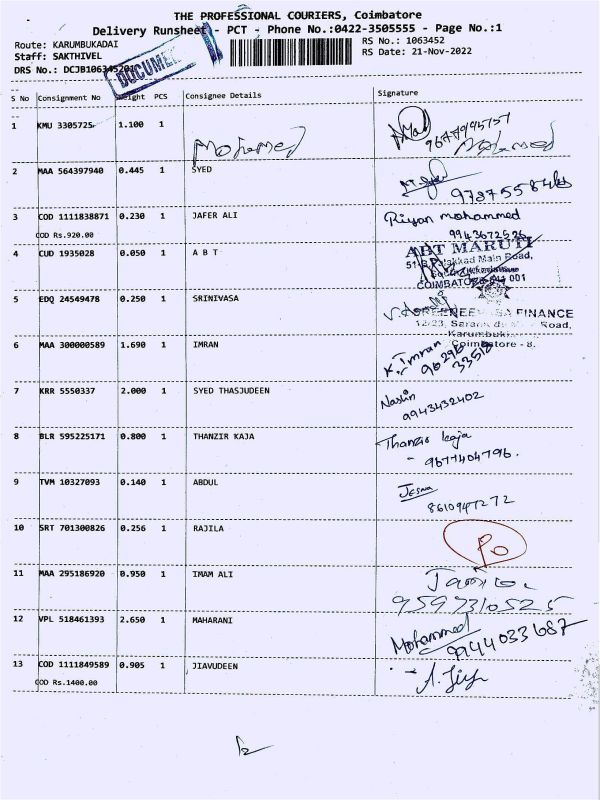 THE PROFESSIONAL COURIERS, Coimbatore
Delivery Runsheet - PCT - Phone No.:0422-3505555 - Page No.:1
Route: KARUMBUKADAI
RS No.: 1063452
Staff: SAKTHIVEL
RS Date: 21-Nov-2022
DRS No.: DCJB1063452
DOCUMEN
S No Consignment No Weight PCS Consignee Details Signature
1 KMU 3305725 1.100 1 Mohamed
Mohamed
2 MAA 564397940 0.445 1 SYED
3 COD 1111838871 0.230 1 JAFER ALI Riyan mohammed
COD Rs.920.00 9943672526
4 CUD 1935028 0.050 1 A B T ABT MARUTI
Main Road,
COIMBATORE 001
5 EDQ 24549478 0.250 1 SRINIVASA
SREENEEVASA FINANCE
12/23, Road,
Karumbuk
Coimbatore - 8.
6 MAA 300000589 1.690 1 IMRAN K. Imran
7 KRR 5550337 2.000 1 SYED THASJUDEEN
9943432402
8 BLR 595225171 0.800 1 THANZIR KAJA Thanzir kaja
- 9677404796.
9 TVM 10327093 0.140 1 ABDUL
8610947272
10 SRT 701300826 0.256 1 RAJILA Po
11 MAA 295186920 0.950 1 IMAM ALI
9597310525
12 VPL 518461393 2.650 1 MAHARANI Mohammed
9944033687
13 COD 1111849589 0.905 1 JIAVUDEEN
COD Rs.1400.00